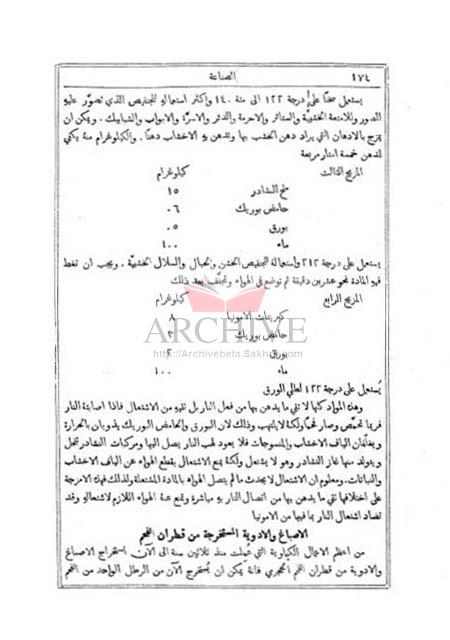 ١٧٤
الصناعة
يستعمل سخنًا على درجة ١٢٢ الى مئة ١٤٠ واكثر استعماله للجنفيص الذي تصوَّر عليه
الصور وللامتعة الخشبيَّة والستائر والاحرمة والدثر والاسرَّة والابواب والشبابيك. ويمكن ان
يمزج بالادهان التي يراد دهن الخشب بها وتدهن به الاخشاب دهنًا. والكيلوغرام منهُ يكفي
لدهن خمسة امتار مربعة
المزيج الثالث
كيلوغرام
ملح النشادر
١٥
حامض بوريك
٠٦
بورق
٠٥
ماء
١٠٠
يستعمل على درجة ٢١٢ واستعمالهُ للجنفيص الخشن والحبال والسلال الخشبيَّة. ويجب ان تغط
فيهِ المادة نحو عشرين دقيقة ثم توضع في الهواء وتجفَّف بعد ذلك
المزيج الرابع
كيلوغرام
كبريتات الامونيا
٨
حامض بوريك
٣
بورق
٢
ماء
١٠٠
يُستعمل على درجة ١٢٢ لعالي الورق
وهذه المواد كلها لا تقي ما يدهن بها من فعل النار بل تقيهِ من الاشتعال فاذا اصابتهُ النار
فربما تحمَّص وصار فحمًا ولكنهُ لا يلتهب وذلك لان البورق والحامض البوريك يذوبان بالحرارة
ويغلِّفان الياف الاخشاب والمنسوجات فلا يعود لهب النار يصل اليها ومركبات النشادر تنحل
ويتولد منها غاز النشادر وهو لا يشتعل ولكنهُ يمنع الاشتعال بقطع الهواء عن الياف الاخشاب
والنباتات. ومعلوم ان الاشتعال لا يحدث ما لم يتصل الهواء بالمادة المشتعلة ولذلك فهذه الامزجة
على اختلافها تقي ما يدهن بها من اتصال النار بهِ مباشرة وتمنع عنهُ الهواء اللازم لاشتعالهِ وقد
تضاد اشتعال النار بما فيها من الامونيا
الاصباغ والادوية المستخرجة من قطران الفحم
من اعظم الاعمال الكياوية التي عُملت منذ ثلاثين سنة الى الآن استخراج الاصباغ
والادوية من قطران الفحم الحجري فانهُ يمكن ان يُستخرج الآن من الرطل الواحد من الفحم
ARCHIVE
http://Archivebeta.Sakhrit.com